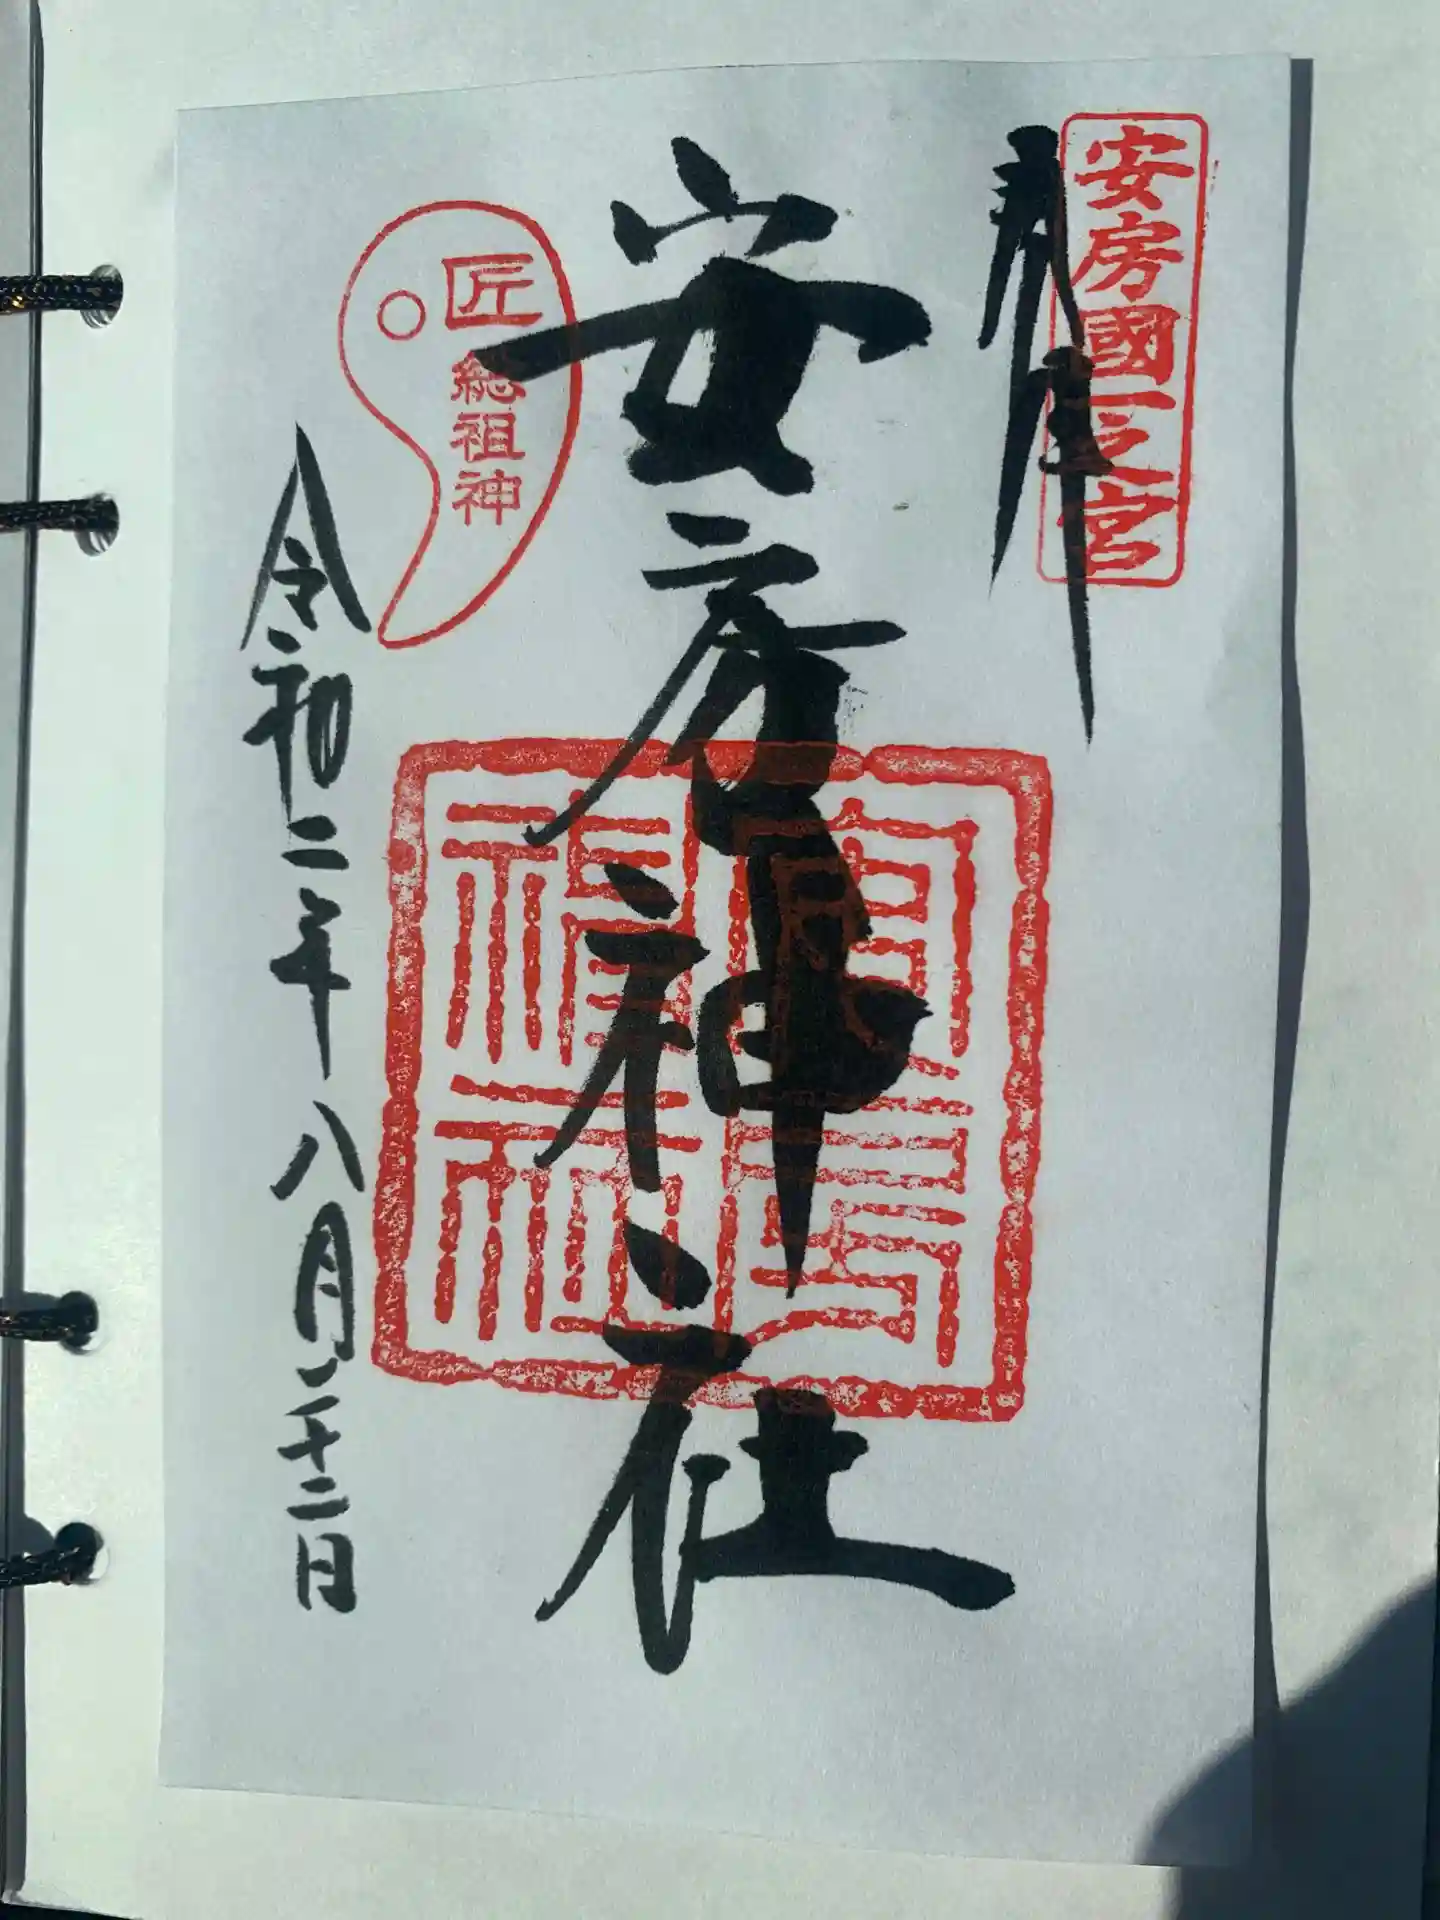 奉拝
安房國一之宮
安房神社
匠総祖神
令和二年八月二十二日